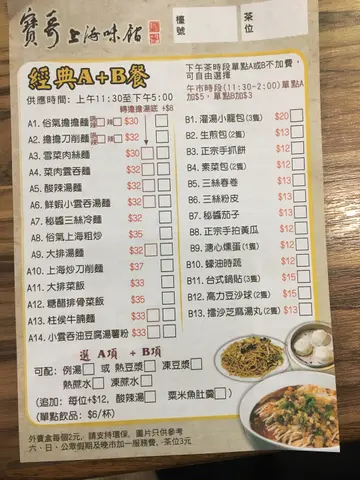 寶哥上海味舘
檯號
茶位
經典A+B餐
供應時間: 上午11:30至下午5:00
下午茶時段單點A或B不加費,
可自由選擇
午市時段(11:30-2:00)單點A
加$5, 單點B加$3
轉擔擔湯底 +$8
A1. 俗氣擔擔麵 辣 $30
A2. 擔擔刀削麵 辣 $32
A3. 雪菜肉絲麵 $30
A4. 菜肉雲吞麵 $32
A5. 酸辣湯麵 $32
A6. 鮮蝦小雲吞湯麵 $32
A7. 秘醬三絲冷麵 $32
A8. 俗氣上海粗炒 $35
A9. 大排湯麵 $32
A10. 上海炒刀削麵 $37
A11. 大排菜飯 $33
A12. 糖醋排骨菜飯 $35
A13. 柱侯牛腩麵 $33
A14. 小雲吞油豆腐湯薯粉 $33
B1. 灌湯小籠包(3隻) $20
B2. 生煎包(2隻) $13
B3. 正宗手抓餅 $13
B4. 素菜包(2隻) $13
B5. 三絲春卷 $13
B6. 三絲粉皮 $13
B7. 秘醬茄子 $13
B8. 正宗手拍黃瓜 $13
B9. 溏心燻蛋(1隻) $13
B10. 蠔油時蔬 $13
B11. 台式鍋貼(3隻) $15
B12. 高力豆沙球(2隻) $13
B13. 擂沙芝麻湯丸(2隻) $13
選 A項 + B項
可配: 例湯 或 熱豆漿 凍豆漿
熱蔗水 凍蔗水
(追加: 每位+$12, 酸辣湯 粟米魚肚羹)
(單點飲品: $6/杯)
外賣盒每個2元, 請支持環保, 圖片只供參考
六、日、公眾假期及晚市加一服務費, 茶位3元